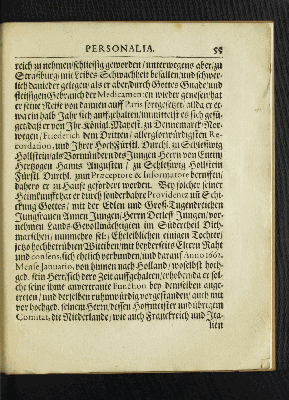 PERSONALIA. 55
reich zu nehmen/schlüssig geworden / unterwegens aber/zu
Straßburg mit Leibes Schwachheit befallen/und schwer-
lich danieder gelegen/als er aber/durch Gottes Gnade/und
fleissigen Gebrauch der Medicamenten wieder genesen/hat
er seine Reise von dannen auff Paris fortgesetzet/ allda er et-
wa ein halb Jahr sich auffgehalten/immittelst es sich gefü-
get/daß er von Ihr. Königl. Majest. zu Dennemarck-Nor-
wegen / Friederich dem Dritten / allerglorwürdigsten Re-
cordation, und Ihrer HochFürstl. Durchl. zu Schleßwig
Hollstein/als Vormündern des Jungen Herrn von
Hertzogen Hanns Augusten / zu Schleßwig Hollstein
Fürstl. Durchl. zum Præceptore & Informatore beruffen/
dahero er zu Hause gefordert worden. Bey solcher seiner
Heimkunfft hat er durch sonderbahre Providentz uñ Schi-
ckung Gottes / mit der Edlen und Groß-Tugendreichen
Jungfrauen Annen Jungen/Herrn Detleff Jungen/ vor-
nehmen Lands-Gevollmächtigten im Südertheil Dith-
marschen/ nunmehro sel. Eheleiblichen einigen Tochter/
jetzo hochbetrübten/Wittiben/mit beyderseits Eltern Raht
und consens, sich ehelich verbunden/und darauf Anno 1662.
Mense Januario, von hinnen nach Holland/ woselbst hoch-
ged. sein Herr sich dero Zeit auffgehalten/erhoben da er sol-
che seine ihme anvertraute Function bey demselben ange-
treten / und derselben ruhmwürdig vorgestanden/ auch mit
vor hochged. seinem Herrn/ dessen Hoffmeister und übrigem
Comitat, die Niederlande/ wie auch Franckreich und Ita-
lien